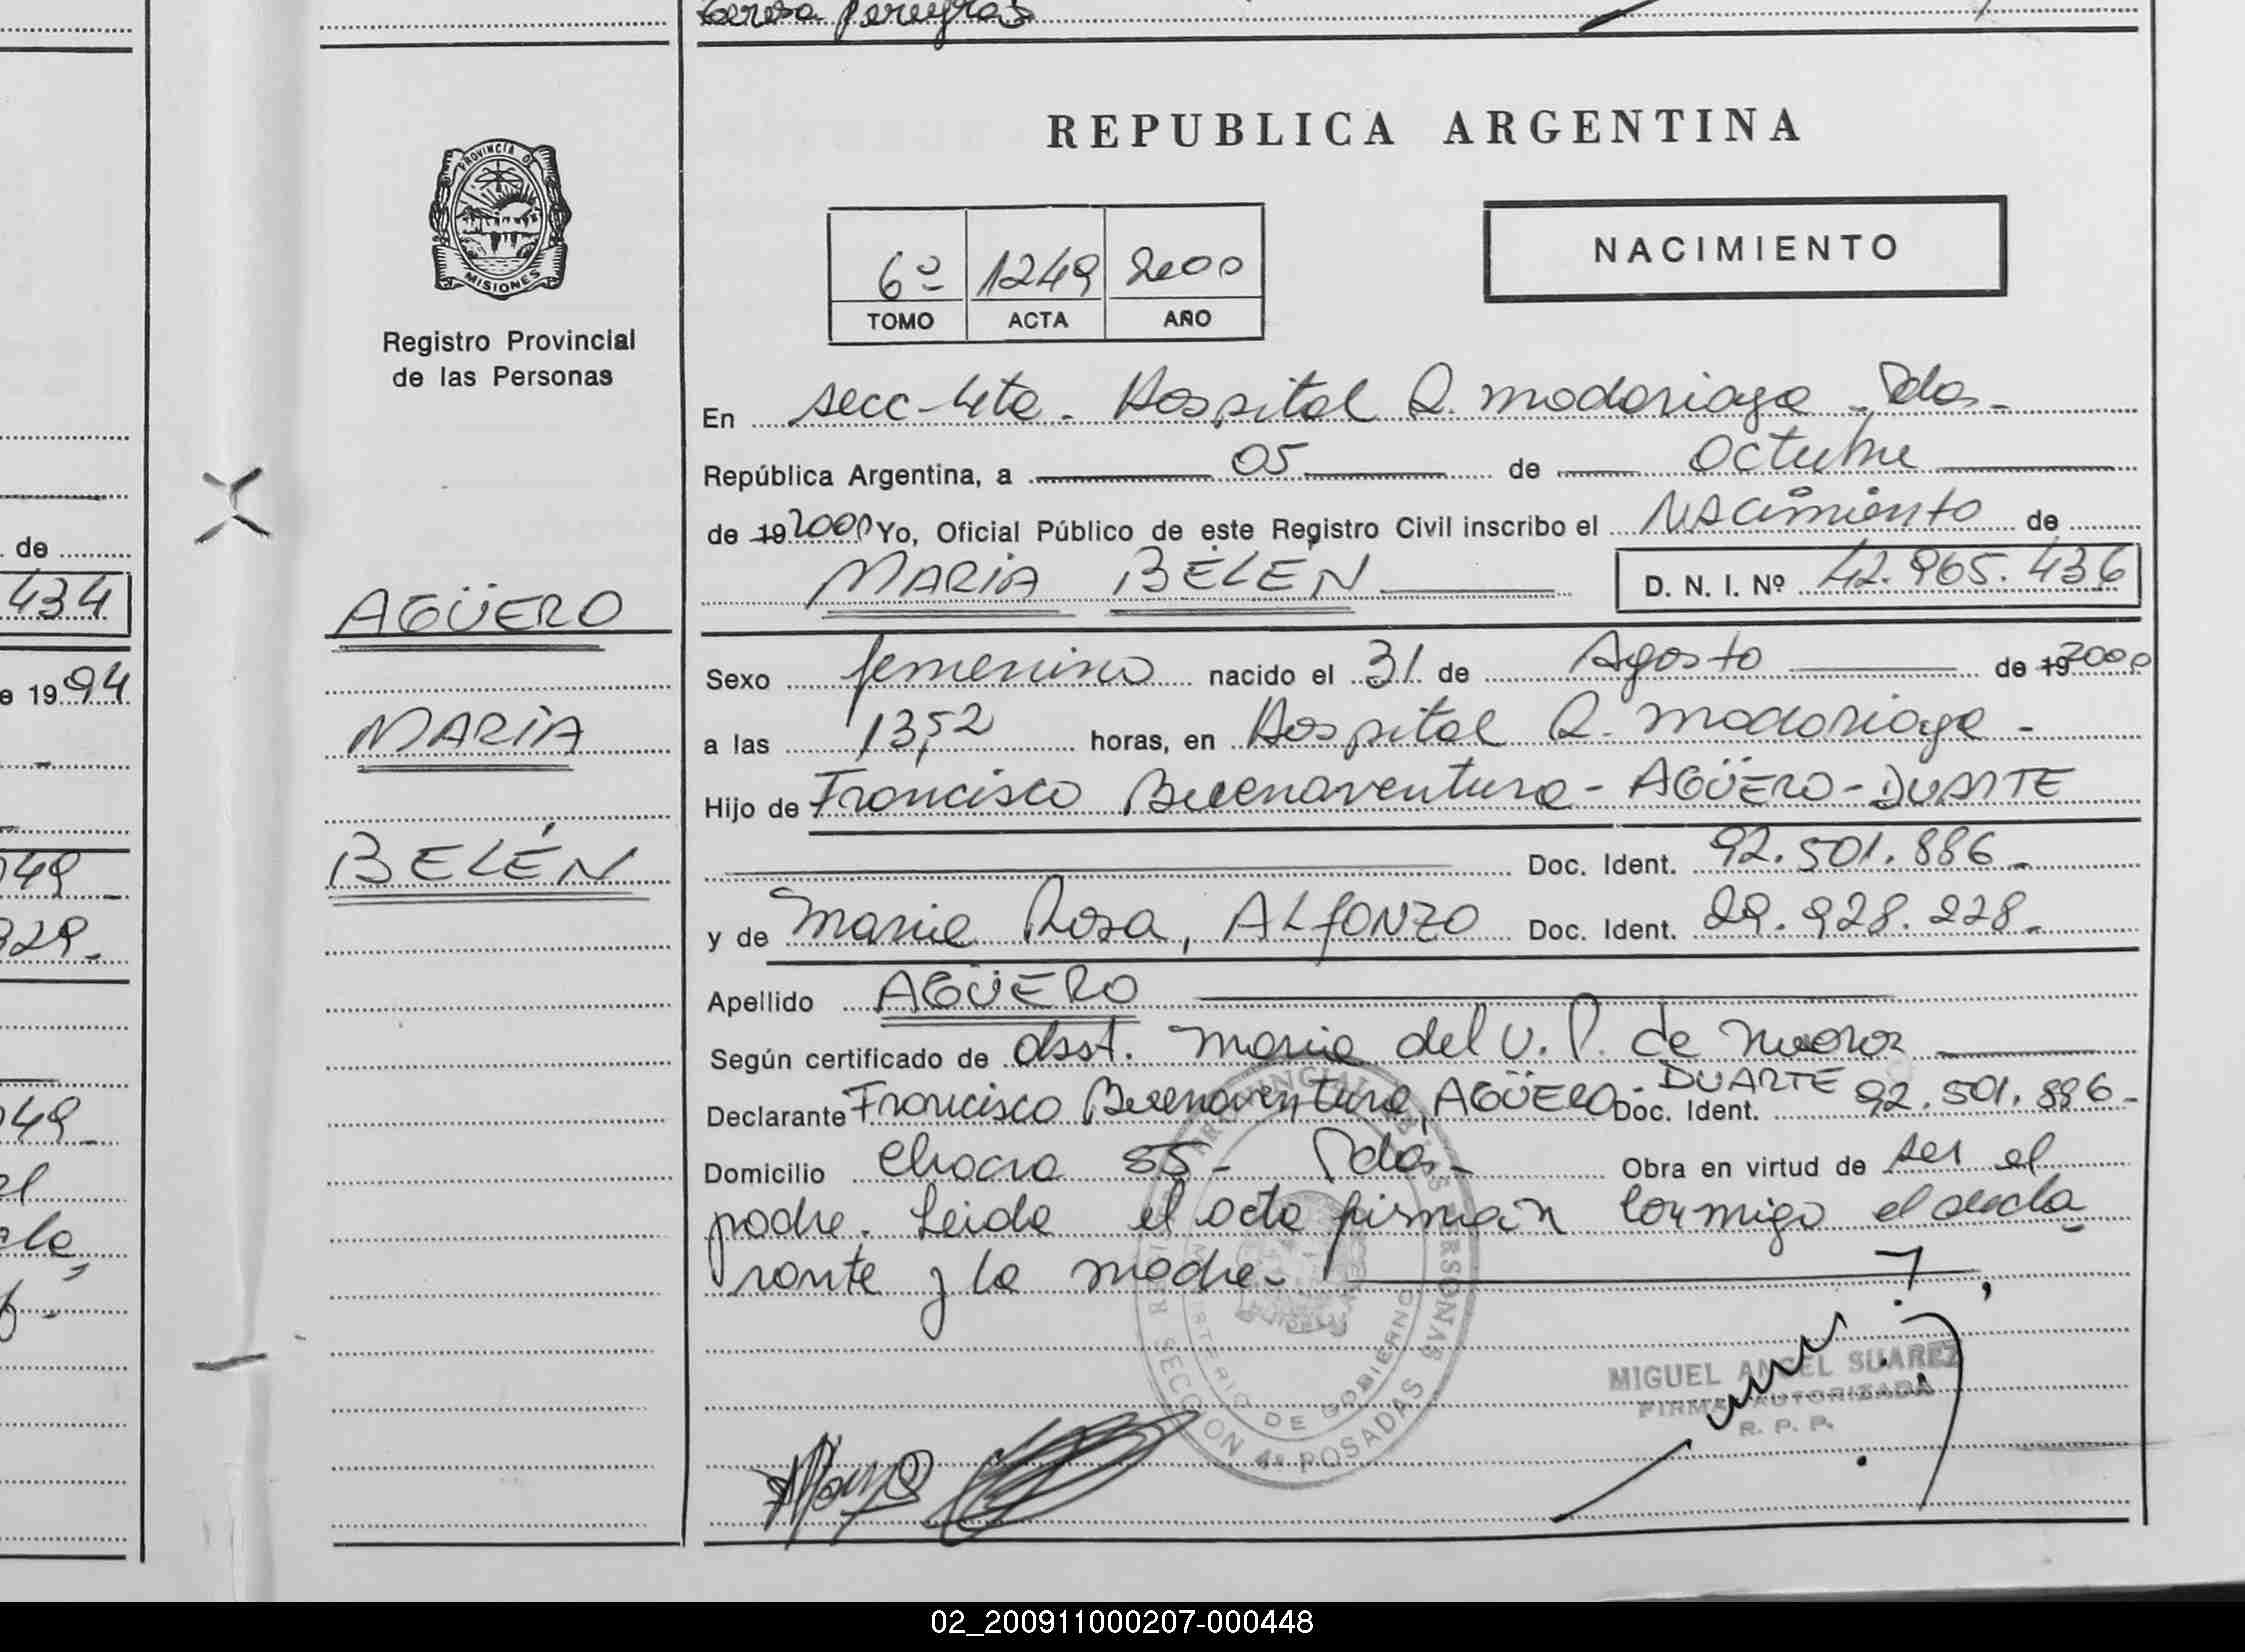 Teresa Pereyra
REPUBLICA ARGENTINA
PROVINCIA DE
MISIONES
Registro Provincial
de las Personas
NACIMIENTO
6º 1249 2000
TOMO ACTA AÑO
En Secc. 4ta. Hospital R. Madariaga - Pdas -
República Argentina, a 05 de Octubre
de 19 2000 Yo, Oficial Público de este Registro Civil inscribo el Nacimiento de
MARIA BELÉN D. N. I. Nº 42.965.436
Sexo femenino nacido el 31 de Agosto de 19 2000
a las 13,52 horas, en Hospital R. Madariaga -
Hijo de Francisco Buenaventura - AGÜERO - DUARTE
Doc. Ident. 92.501.886 -
y de Maria Rosa, ALFONZO Doc. Ident. 29.928.228 -
Apellido AGÜERO
Según certificado de obst. Maria del V. P. de
Declarante Francisco Buenaventura, AGÜERO - DUARTE Doc. Ident. 92.501.886 -
Domicilio Chacra 55 - Pdas - Obra en virtud de ser el
padre. Leida el acta firman conmigo el decla
rante y la madre -
AGÜERO
MARIA
BELÉN
MINISTERIO DE GOBIERNO
SECCION 4ª POSADAS
MIGUEL ANGEL SUAREZ
FIRMA AUTORIZADA
R. P. P.
de
434
e 19 94
49
829 -
49 -
02_200911000207-000448